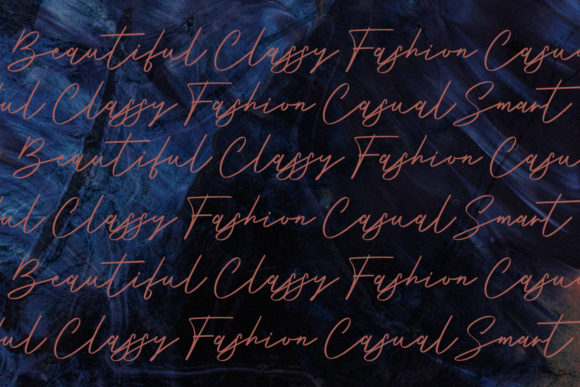 Beautiful Classy Fashion Casu
ful Classy Fashion Casual Smart
Beautiful Classy Fashion Casu
ful Classy Fashion Casual Smart
Beautiful Classy Fashion Casu
ful Classy Fashion Casual Smart